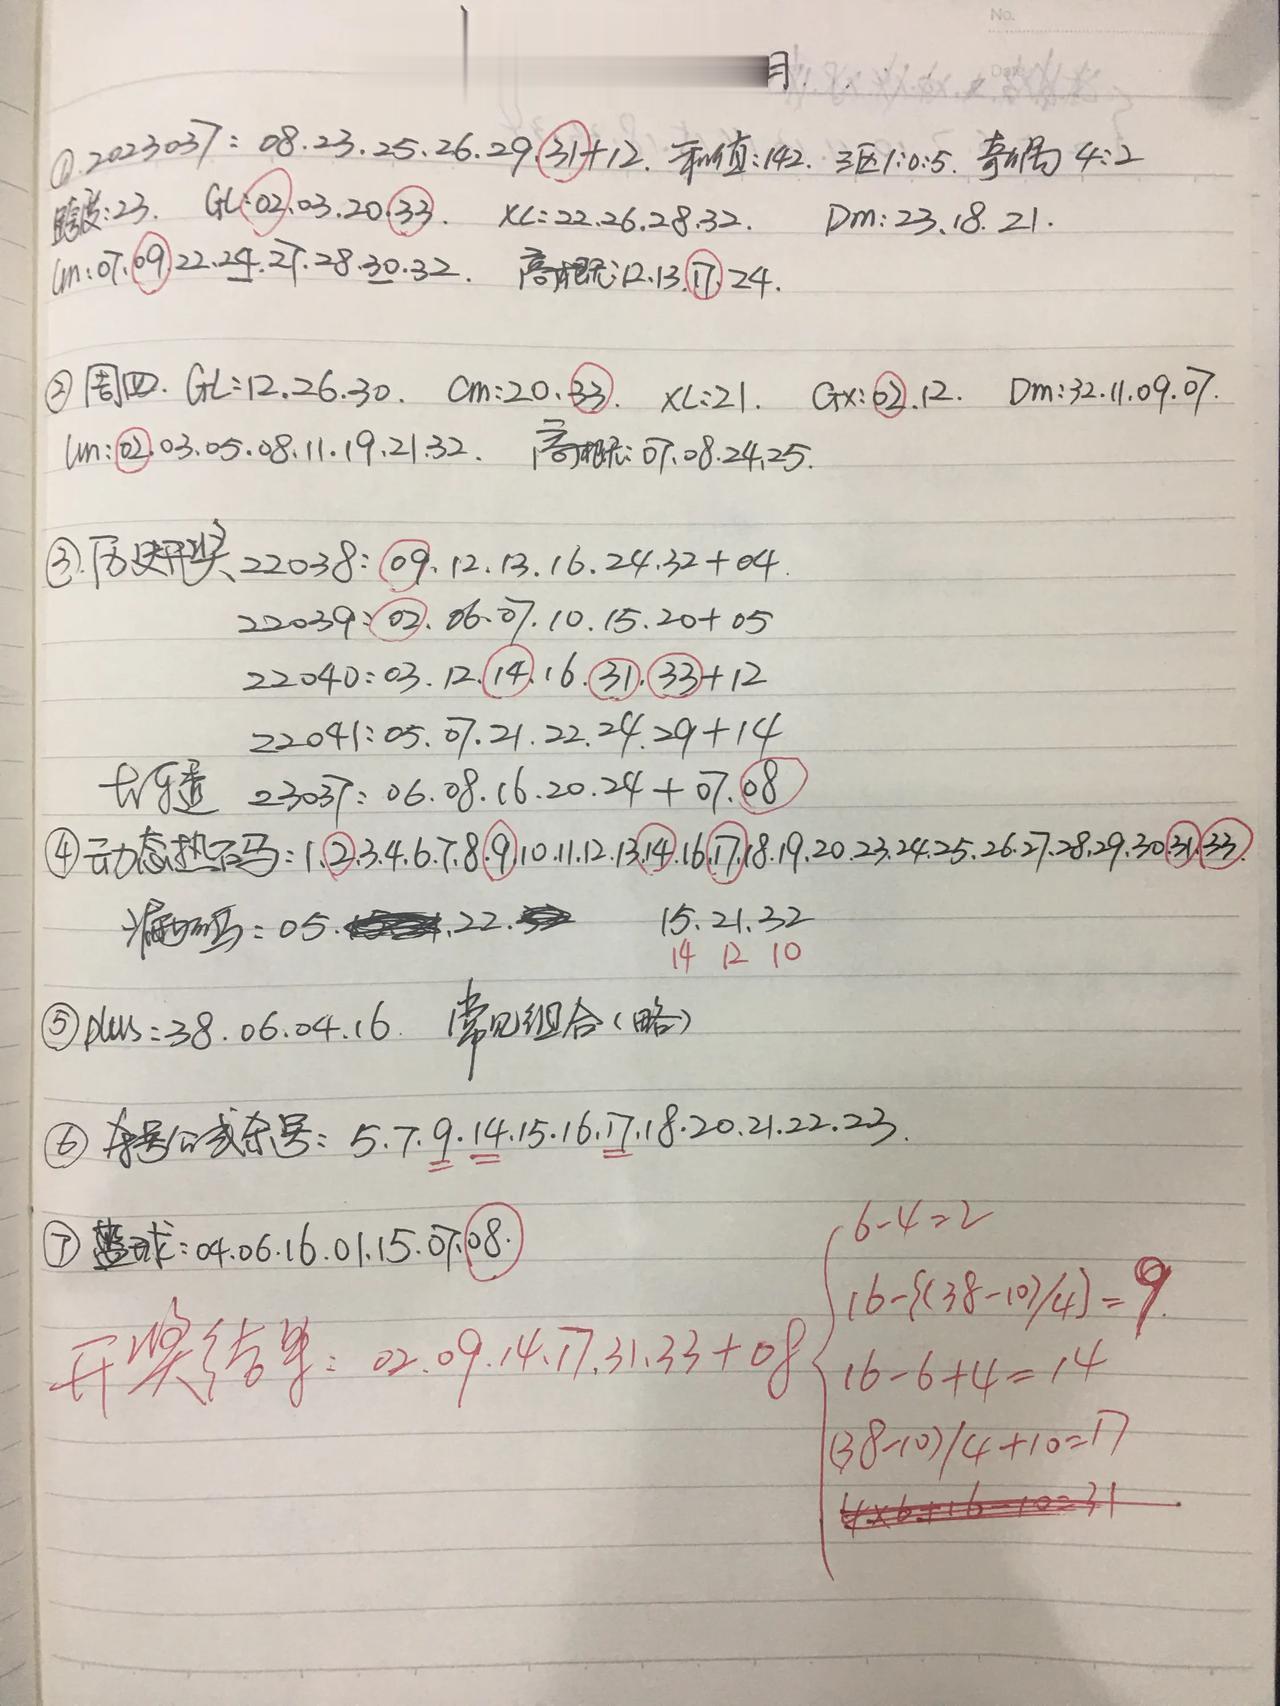 No.
Date
月
① 2023037: 08.23.25.26.29.31+12. 和值:142. 3区1:0:5. 奇偶4:2
跨度:23. GL:02.03.20.33. XL:22.26.28.32. Dm:23.18.21.
Lm:07.09.22.24.27.28.30.32. 高概:12.13.17.24.
② 周四. GL:12.26.30. Cm:20.33. XL:21. Gx:02.12. Dm:32.11.09.07.
Lm:02.03.05.08.11.19.21.32. 高概:07.08.24.25.
③.历史开奖 22038:09.12.13.16.24.32+04.
22039:02.06.07.10.15.20+05
22040:03.12.14.16.31.33+12
22041:05.07.21.22.24.29+14
大乐透 23037:06.08.16.20.24+07.08
④ 动态热码:1.2.3.4.6.7.8.9.10.11.12.13.14.16.17.18.19.20.23.24.25.26.27.28.29.30.31.33.
:05. .22. 15.21.32
14 12 10
⑤ plus:38.06.04.16. 常见组合(略)
⑥ 杀号公式杀号:5.7.9.14.15.16.17.18.20.21.22.23.
⑦ 蓝球:04.06.16.01.15.07.08.
开奖结果:02.09.14.17.31.33+08
6-4=2
16-{(38-10)/4}=9.
16-6+4=14
(38-10)/4+10=17
4×6+16-10=31